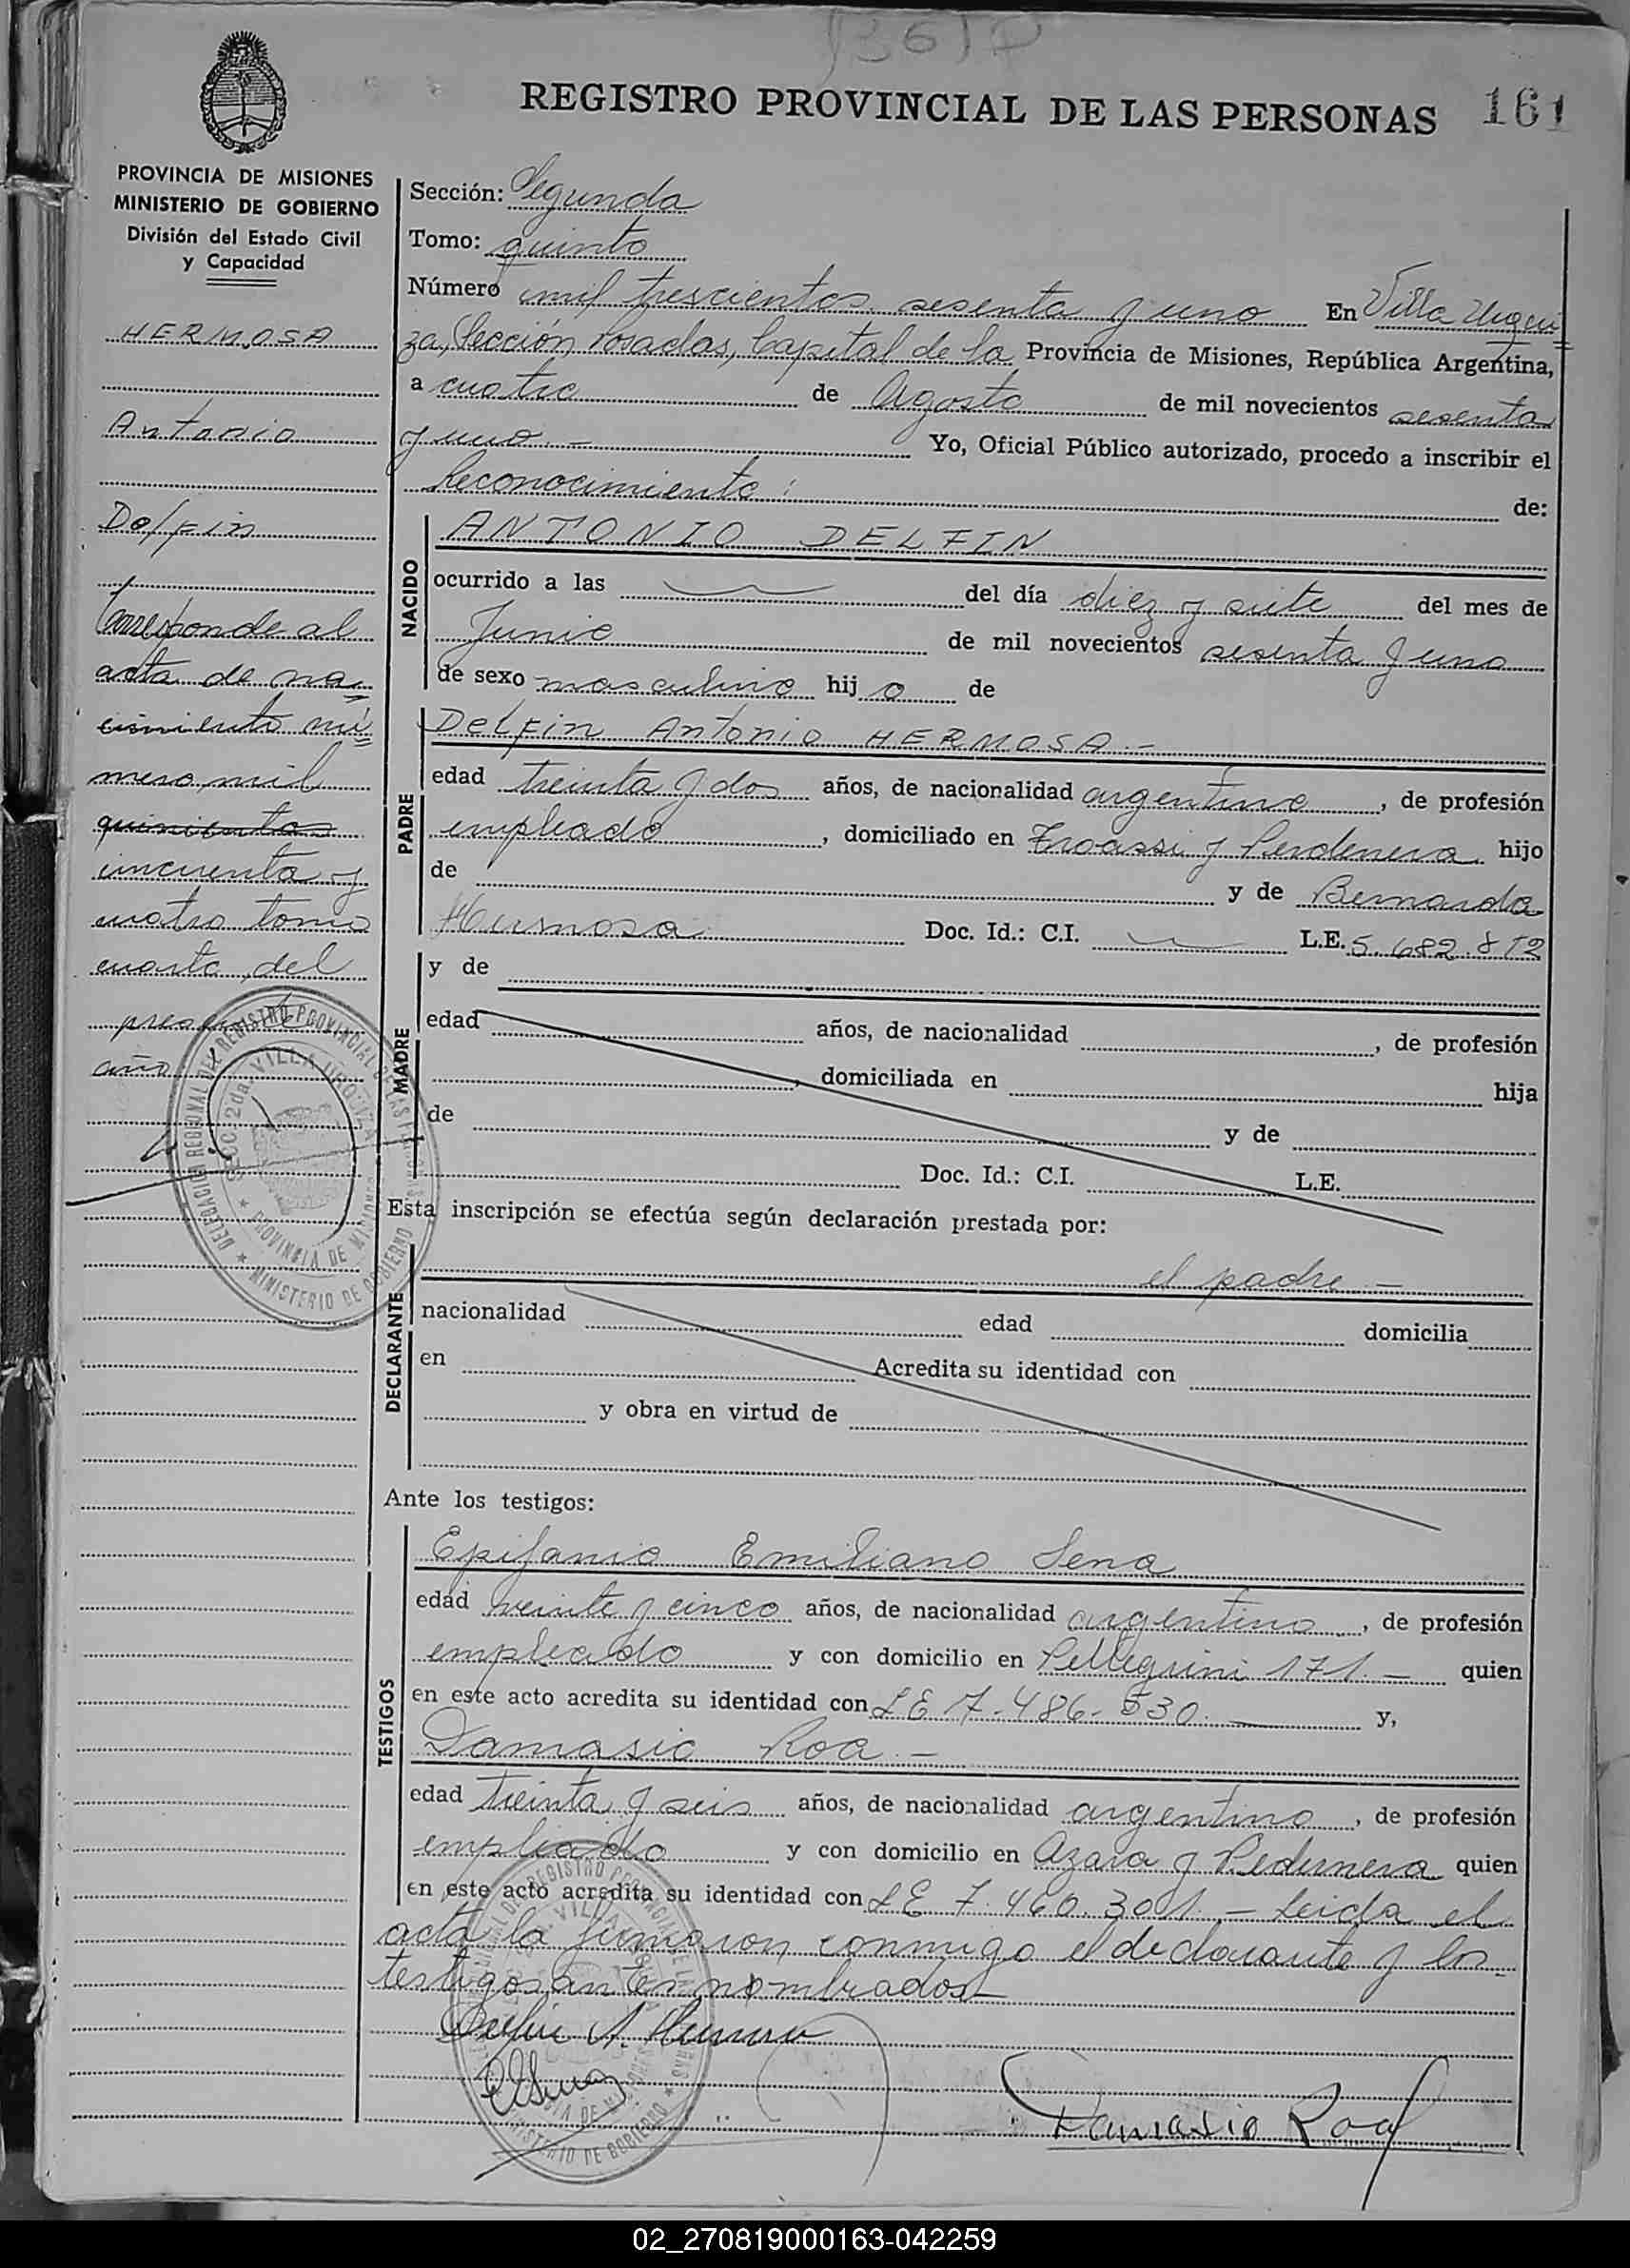 1361 D
REGISTRO PROVINCIAL DE LAS PERSONAS 161
PROVINCIA DE MISIONES
MINISTERIO DE GOBIERNO
División del Estado Civil
y Capacidad
HERMOSA
Antonio
Delfin
Corresponde al
acta de na=
cimiento nú=
mero mil
quinientos
cincuenta y
cuatro tomo
cuarto del
presente
año
Sección: Segunda
Tomo: quinto
Número mil trescientos sesenta y uno En Villa Urqui=
za, Sección Posadas, Capital de la Provincia de Misiones, República Argentina,
a cuatro de Agosto de mil novecientos sesenta
y uno.- Yo, Oficial Público autorizado, procedo a inscribir el
Reconocimiento: de:
NACIDO
ANTONIO DELFIN
ocurrido a las del día diez y siete del mes de
Junio de mil novecientos sesenta y uno
de sexo masculino hijo de
PADRE
Delfin Antonio HERMOSA.-
edad treinta y dos años, de nacionalidad argentino, de profesión
empleado, domiciliado en y Perdenera hijo
de y de Bernarda
Hermosa Doc. Id.: C.I. L.E. 5.682.812
MADRE
y de
edad años, de nacionalidad , de profesión
, domiciliada en hija
de y de
Doc. Id.: C.I. L.E.
Esta inscripción se efectúa según declaración prestada por:
DECLARANTE
el padre.-
nacionalidad edad domicilia
en Acredita su identidad con
y obra en virtud de
Ante los testigos:
TESTIGOS
Epifanio Emiliano Sena
edad veinte y cinco años, de nacionalidad argentino, de profesión
empleado y con domicilio en Pellegrini 171.- quien
en este acto acredita su identidad con LE 7.486.530.- y,
Damasio Roa.-
edad treinta y seis años, de nacionalidad argentino, de profesión
empleado y con domicilio en Azara y Pedernera quien
en este acto acredita su identidad con LE 7.460.301.- Leida el
acta la firmaron conmigo el declarante y los
testigos antes nombrados.-
Delfin A. Hermosa
Damasio Roa
DELEGACION REGIONAL DEL REGISTRO PROVINCIAL DE LAS PERSONAS
SECC. 2da. VILLA URQUIZA
PROVINCIA DE MISIONES
MINISTERIO DE GOBIERNO
02_270819000163-042259